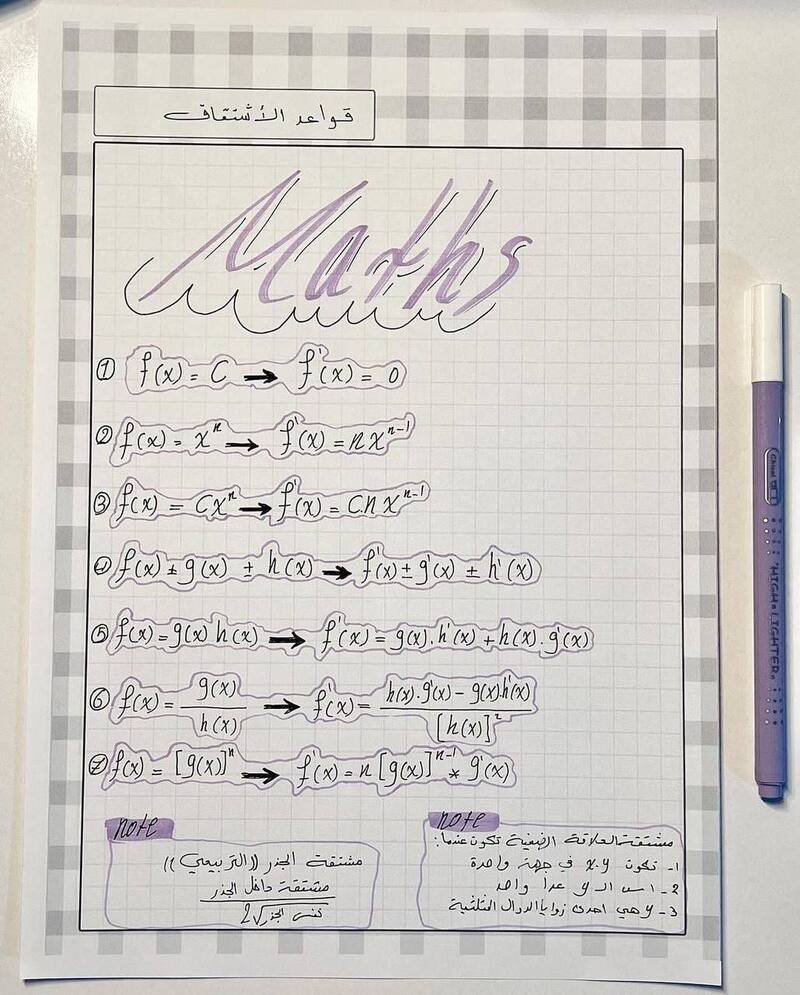 قواعد الأشتقاق
Maths
① f(x) = C → f'(x) = 0
② f(x) = x^n → f'(x) = n x^{n-1}
③ f(x) = Cx^n → f'(x) = C.n x^{n-1}
④ f(x) ± g(x) ± h(x) → f'(x) ± g'(x) ± h'(x)
⑤ f(x) = g(x) h(x) → f'(x) = g(x).h'(x) + h(x).g'(x)
⑥ f(x) = g(x)/h(x) → f'(x) = h(x).g'(x) − g(x).h'(x)/[h(x)]^2
⑦ f(x) = [g(x)]^n → f'(x) = n [g(x)]^{n-1} * g'(x)
note
مشتقة الجذر ((التربيعي))
مشتقة داخل الجذر
2√نفس الجذر
note
مشتقة العلاقة الضمنية تكون عندما:
1- تكون x.y في جهة واحدة
2- اس الـ y عدا واحد
3- y هي احدى زوايا الدوال المثلثية
Chisel tip
HIGHLIGHTER